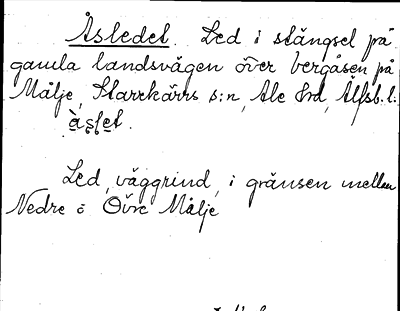 Åsledet. Led i stängsel på
gamla landsvägen över bergåsen på
Målje, Starrkärrs s:n, Ale hrd, Älfsb. l:
åslet.
Led, väggrind, i gränsen mellan
Nedre o Övre Målje